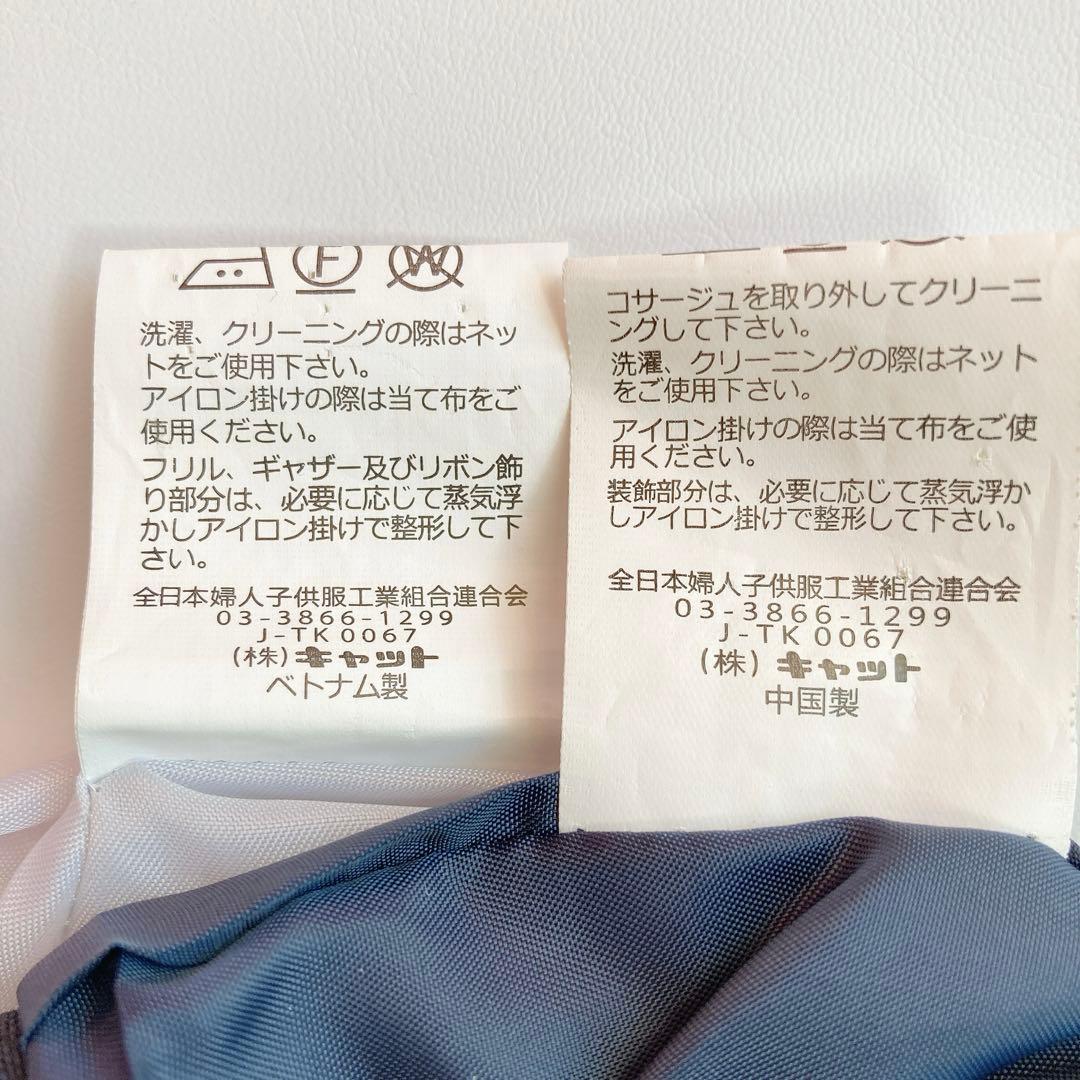 F W
洗濯、クリーニングの際はネッ
トをご使用下さい。
アイロン掛けの際は当て布をご
使用ください。
フリル、ギャザー及びリボン飾
り部分は、必要に応じて蒸気浮
かしアイロン掛けで整形して下
さい。
全日本婦人子供服工業組合連合会
03-3866-1299
J-TK0067
(株)キャット
ベトナム製
コサージュを取り外してクリーニ
ングして下さい。
洗濯、クリーニングの際はネット
をご使用下さい。
アイロン掛けの際は当て布をご使
用ください。
装飾部分は、必要に応じて蒸気浮か
しアイロン掛けで整形して下さい。
全日本婦人子供服工業組合連合会
03-3866-1299
J-TK0067
(株)キャット
中国製